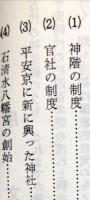 (1) 神階の制度……………
(2) 官社の制度……………
(3) 平安京に新に興った神社……
(4) 石清水八幡宮の創始……